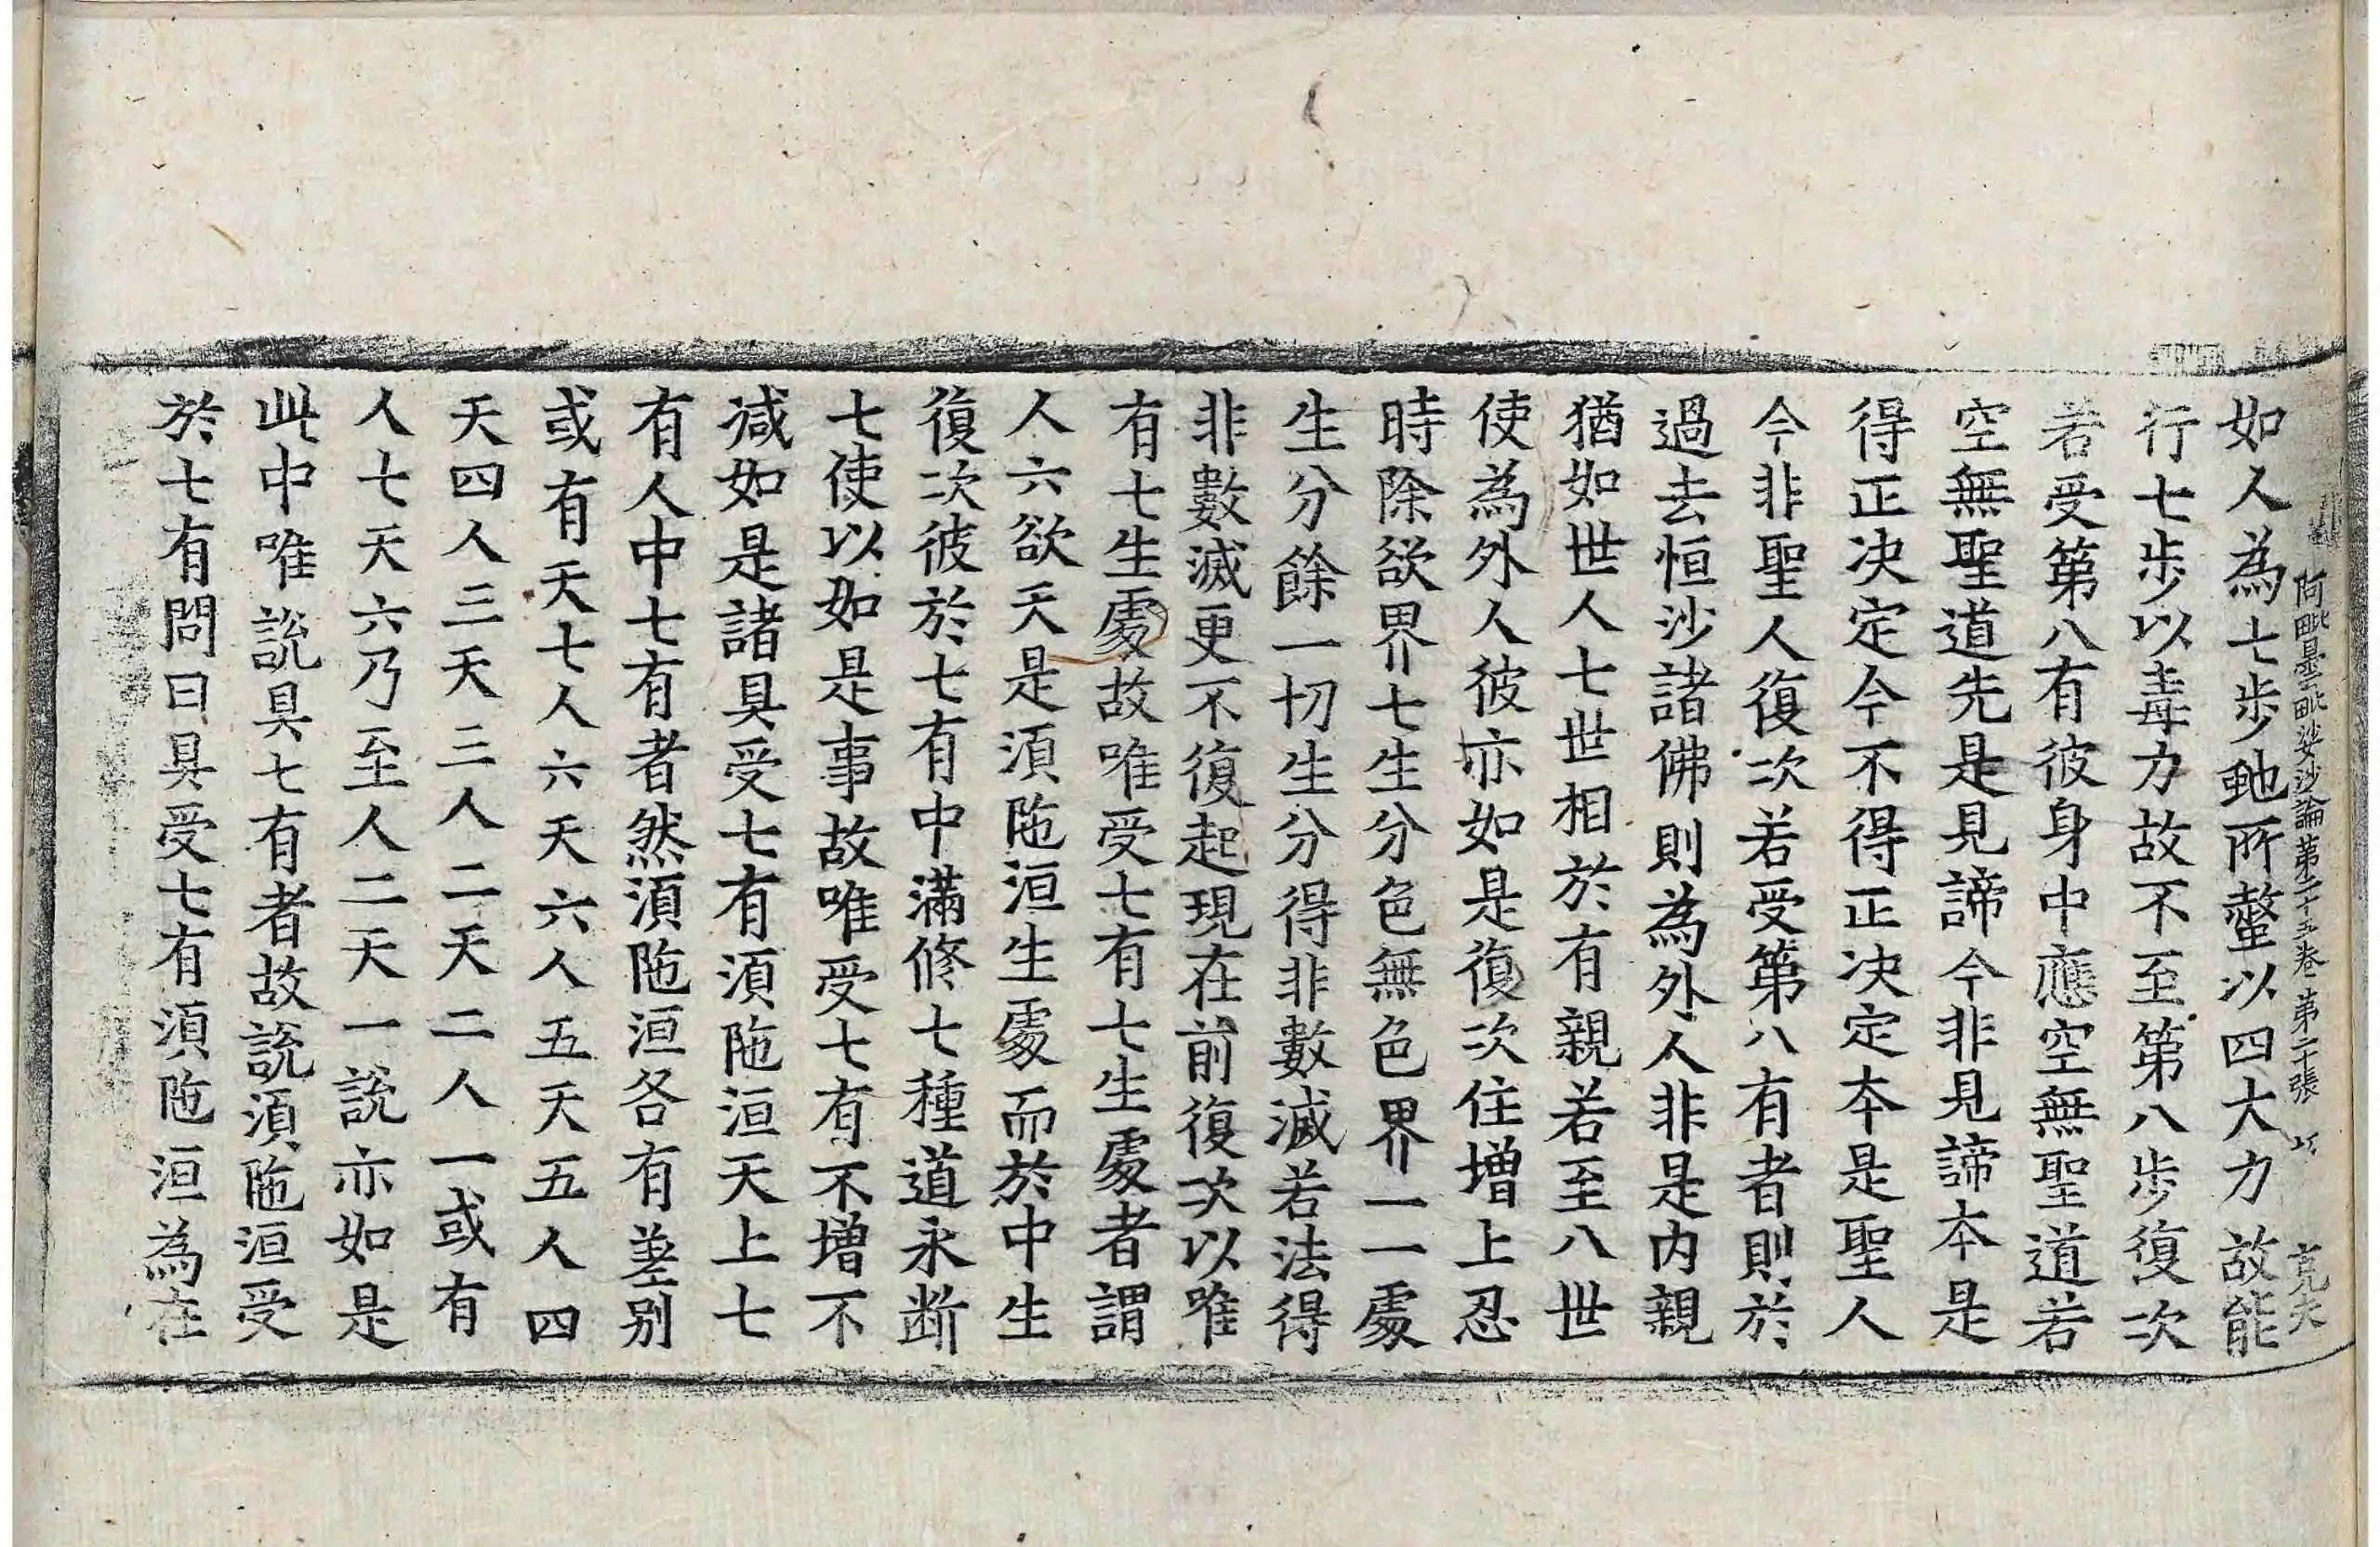 阿毗曇毗婆沙論第二十五卷 第二十張
如人為七步虵所螫以四大力故能
行七步以毒力故不至第八步復次
若受第八有彼身中應空無聖道若
空無聖道先是見諦今非見諦本是
得正决定今不得正决定本是聖人
今非聖人復次若受第八有者則於
過去恒沙諸佛則為外人非是内親
猶如世人七世相於有親若至八世
使為外人彼亦如是復次住增上忍
時除欲界七生分色無色界一一處
生分餘一切生分得非數滅若法得
非數滅更不復起現在前復次以唯
有七生處故唯受七有七生處者謂
人六欲天是須陁洹生處而於中生
復次彼於七有中滿修七種道永断
七使以如是事故唯受七有不增不
减如是諸具受七有須陁洹天上七
有人中七有者然須陁洹各有差别
或有天七人六天六人五天五人四
天四人三天三人二天二人一或有
人七天六乃至人二天一說亦如是
此中唯說具七有者故說須陁洹受
於七有問曰具受七有須陁洹為在